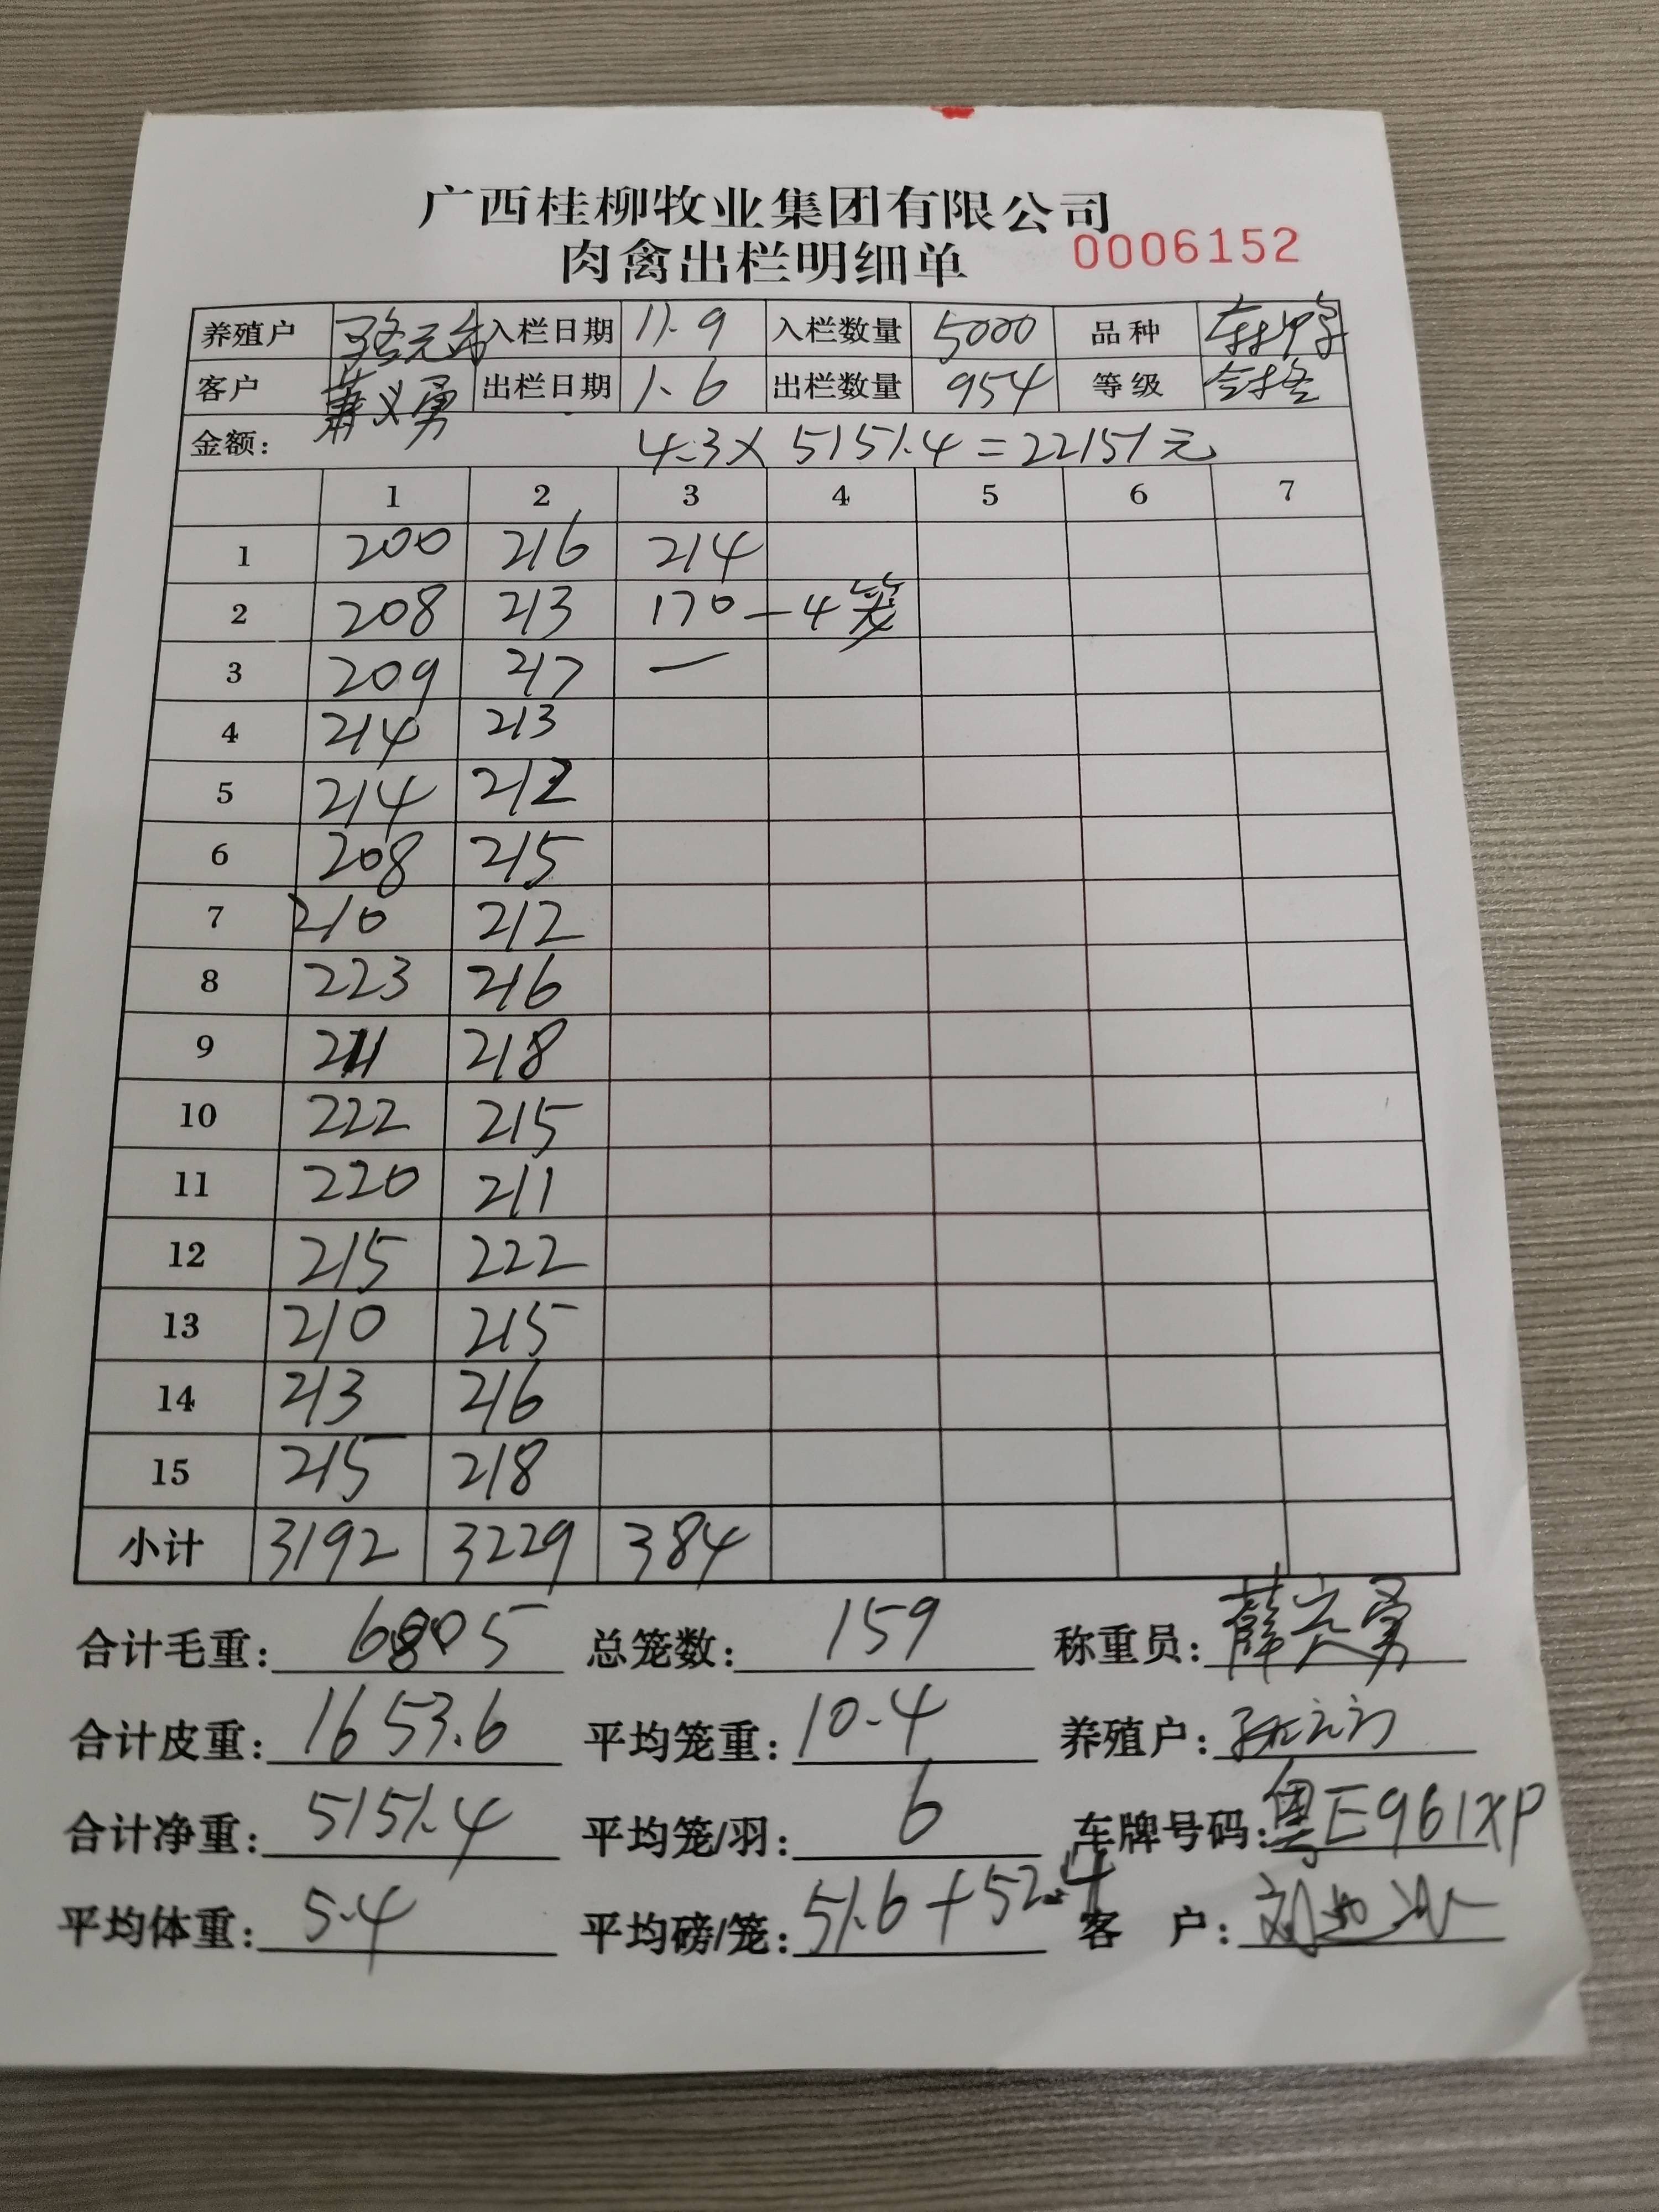 广西桂柳牧业集团有限公司
肉禽出栏明细单 0006152
养殖户 骆元 入栏日期 11.9 入栏数量 5000 品种
客户 萧义勇 出栏日期 1.6 出栏数量 954 等级 合格
金额: 4.3×5151.4=22151元
1 2 3 4 5 6 7
1 200 216 214
2 208 213 170-4笼
3 209 217 —
4 214 213
5 214 212
6 208 215
7 210 212
8 223 216
9 211 218
10 222 215
11 220 211
12 215 222
13 210 215
14 213 216
15 215 218
小计 3192 3229 384
合计毛重: 6805 总笼数: 159 称重员:
合计皮重: 1653.6 平均笼重: 10.4 养殖户:
合计净重: 5151.4 平均笼/羽: 6 车牌号码: 粤E961XP
平均体重: 5.4 平均磅/笼: 51.6+52.4 客户: